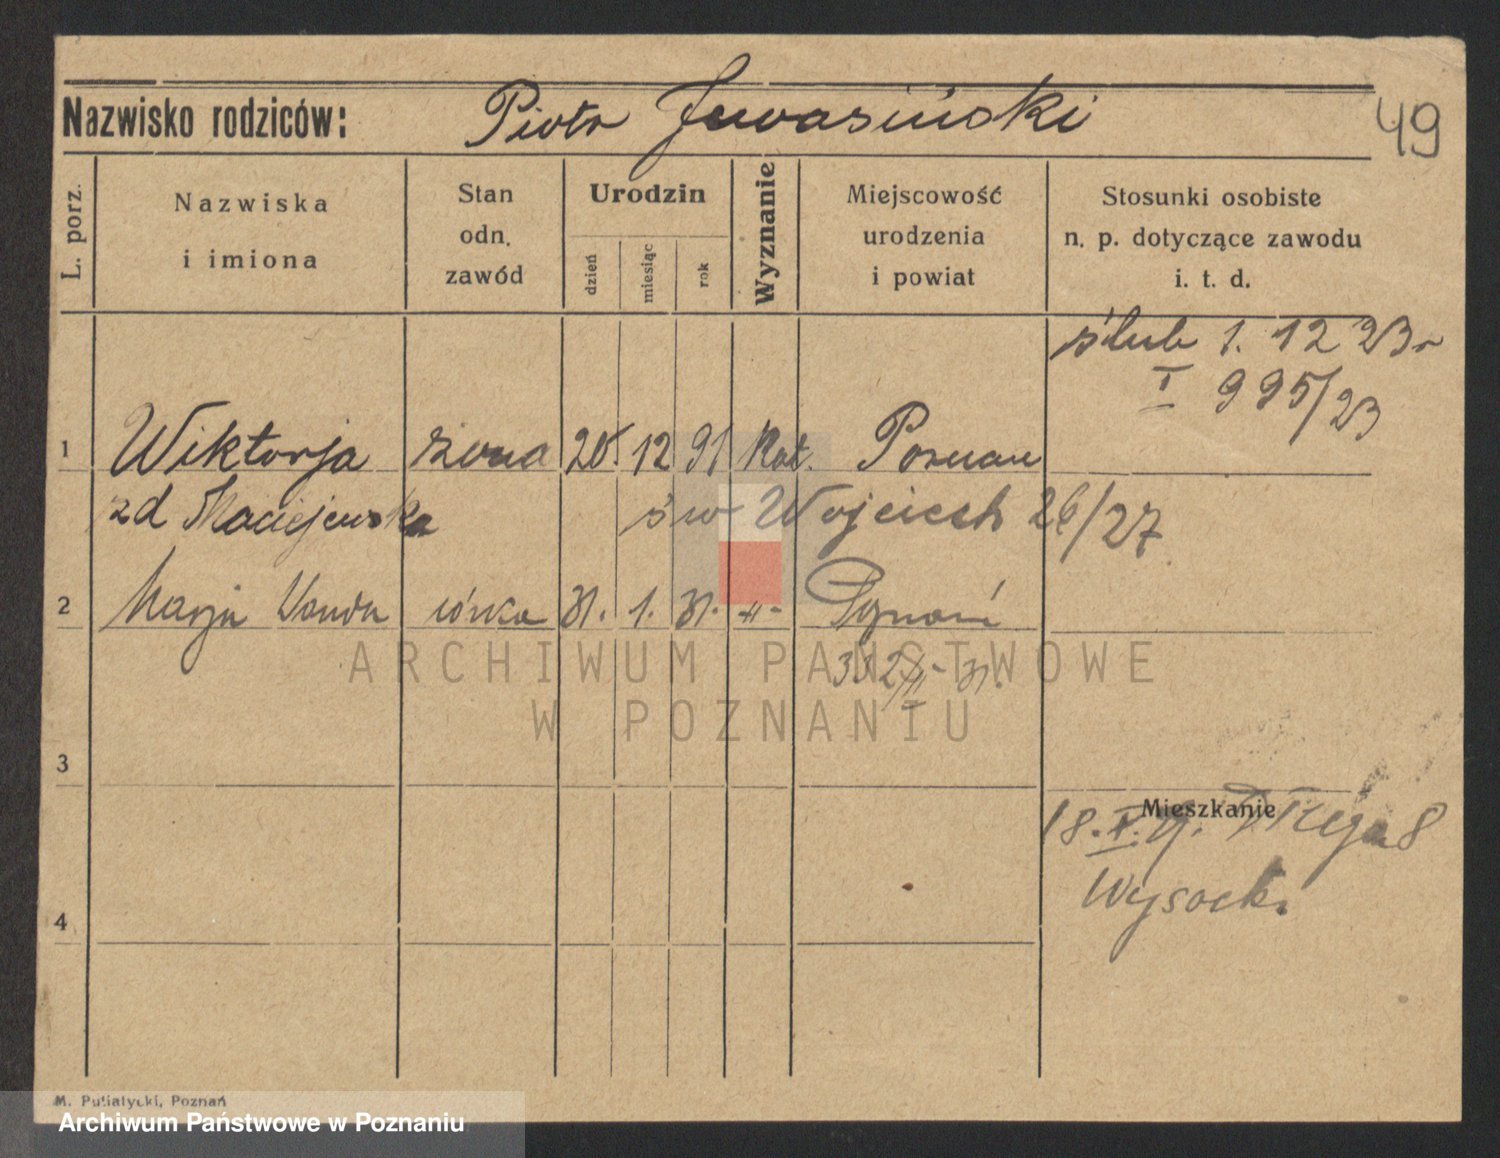 Nazwisko rodziców: Piotr Juwasiński 49
L. porz.
Nazwiska
i imiona
Stan
odn.
zawód
Urodzin
dzień
miesiąc
rok
Wyznanie
Miejscowość
urodzenia
i powiat
Stosunki osobiste
n. p. dotyczące zawodu
i. t. d.
ślub 1. 12 23 r
I 995/23
1 Wiktorja żona 20. 12 91 Kat. Poznań
zd Maciejewska św Wojciech 26/27
2 Marja Wanda córka 31. 1. 31. -"- Poznań
332/II - 31.
3
Mieszkanie
18. X. 19.
Wysocki
4
M. Putiatycki, Poznań
ARCHIWUM PAŃSTWOWE
W POZNANIU
Archiwum Państwowe w Poznaniu